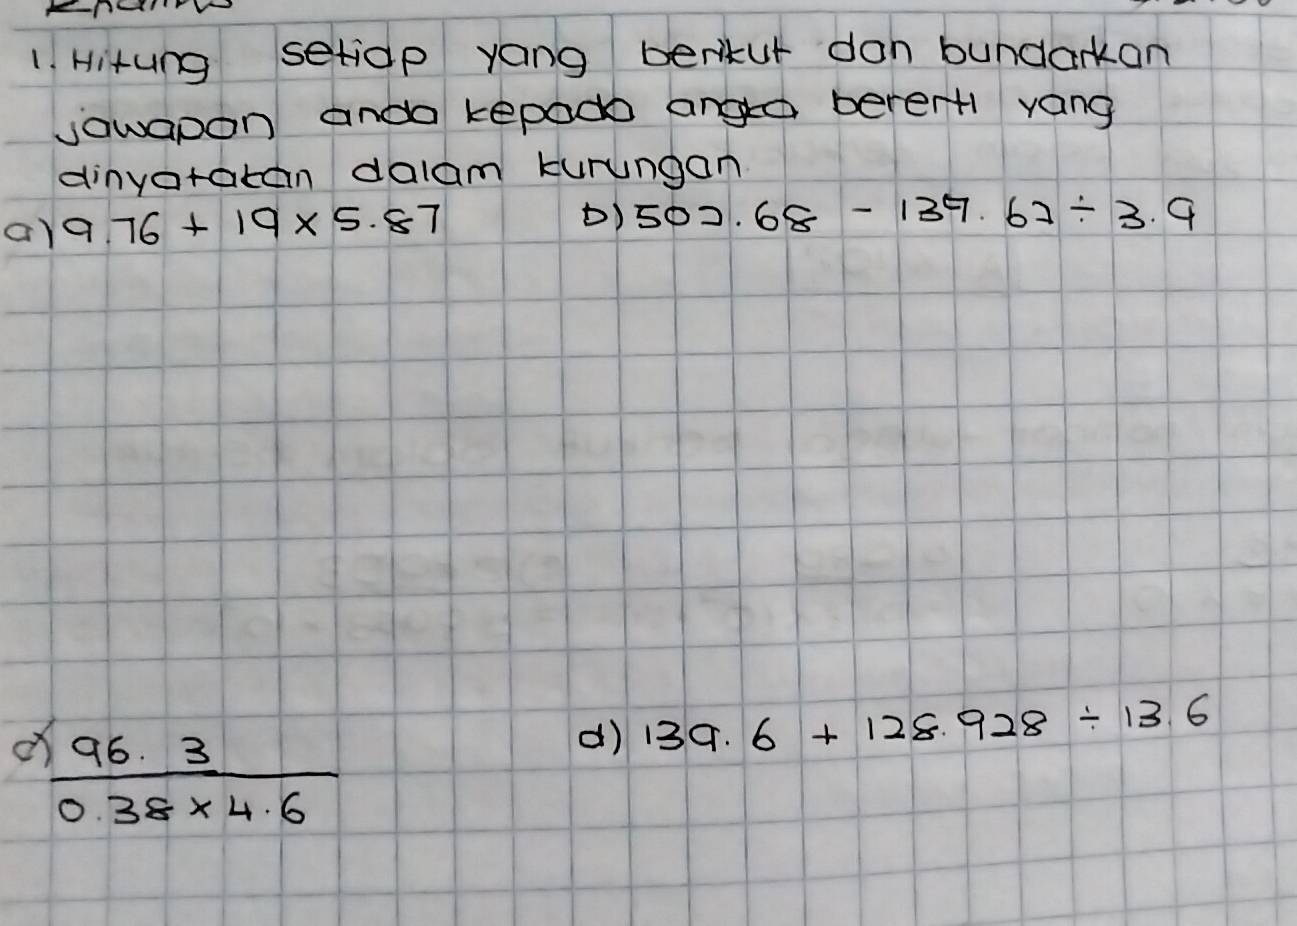 1. Hitung setiap yang berikut dan bundarkan
jawapan anda kepada angka bererti yang
dinyatakan dalam kurungan
a) 9.76 + 19 × 5.87 b) 502.68 - 139.62 ÷ 3.9
c) 96.3
0.38 × 4.6
d) 139.6 + 128.928 ÷ 13.6